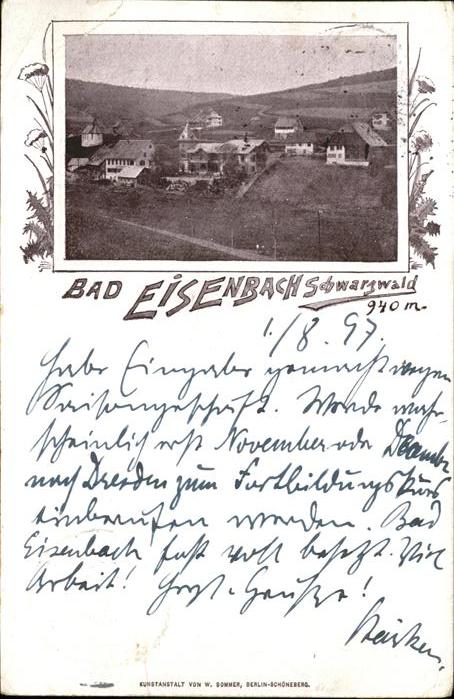 BAD EISENBACH Schwarzwald
940 m.
1./8. 97.
Habe Eingabe gemacht wegen
Saisongeschäft. Werde wahr-
scheinlich erst November oder Decembr
nach Dresden zum Fortbildungskurs
einberufen werden. Bad
Eisenbach fast voll besetzt. Viel
Arbeit! Hrzl. Grüße!
KUNSTANSTALT VON W. SOMMER, BERLIN-SCHÖNEBERG.